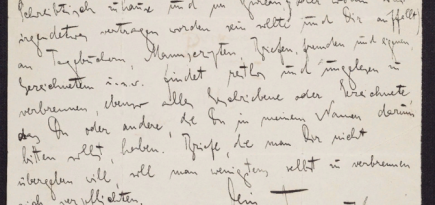 Schreibtisch zuhause und im
irgendetwas vertragen worden sein sollte und Dir auffällt)
an Tagebüchern, Manuscripten, Briefen, fremden und eignen,
Gezeichnetem u.s.w. findet restlos und ungelesen zu
verbrennen ebenso alles Geschriebene oder Gezeichnete,
das Du oder andre, die Du in meinem Namen darum
bitten sollst, haben. Briefe, die man Dir nicht
übergeben will, soll man wenigstens selbst zu verbrennen
sich verpflichten.
Dein